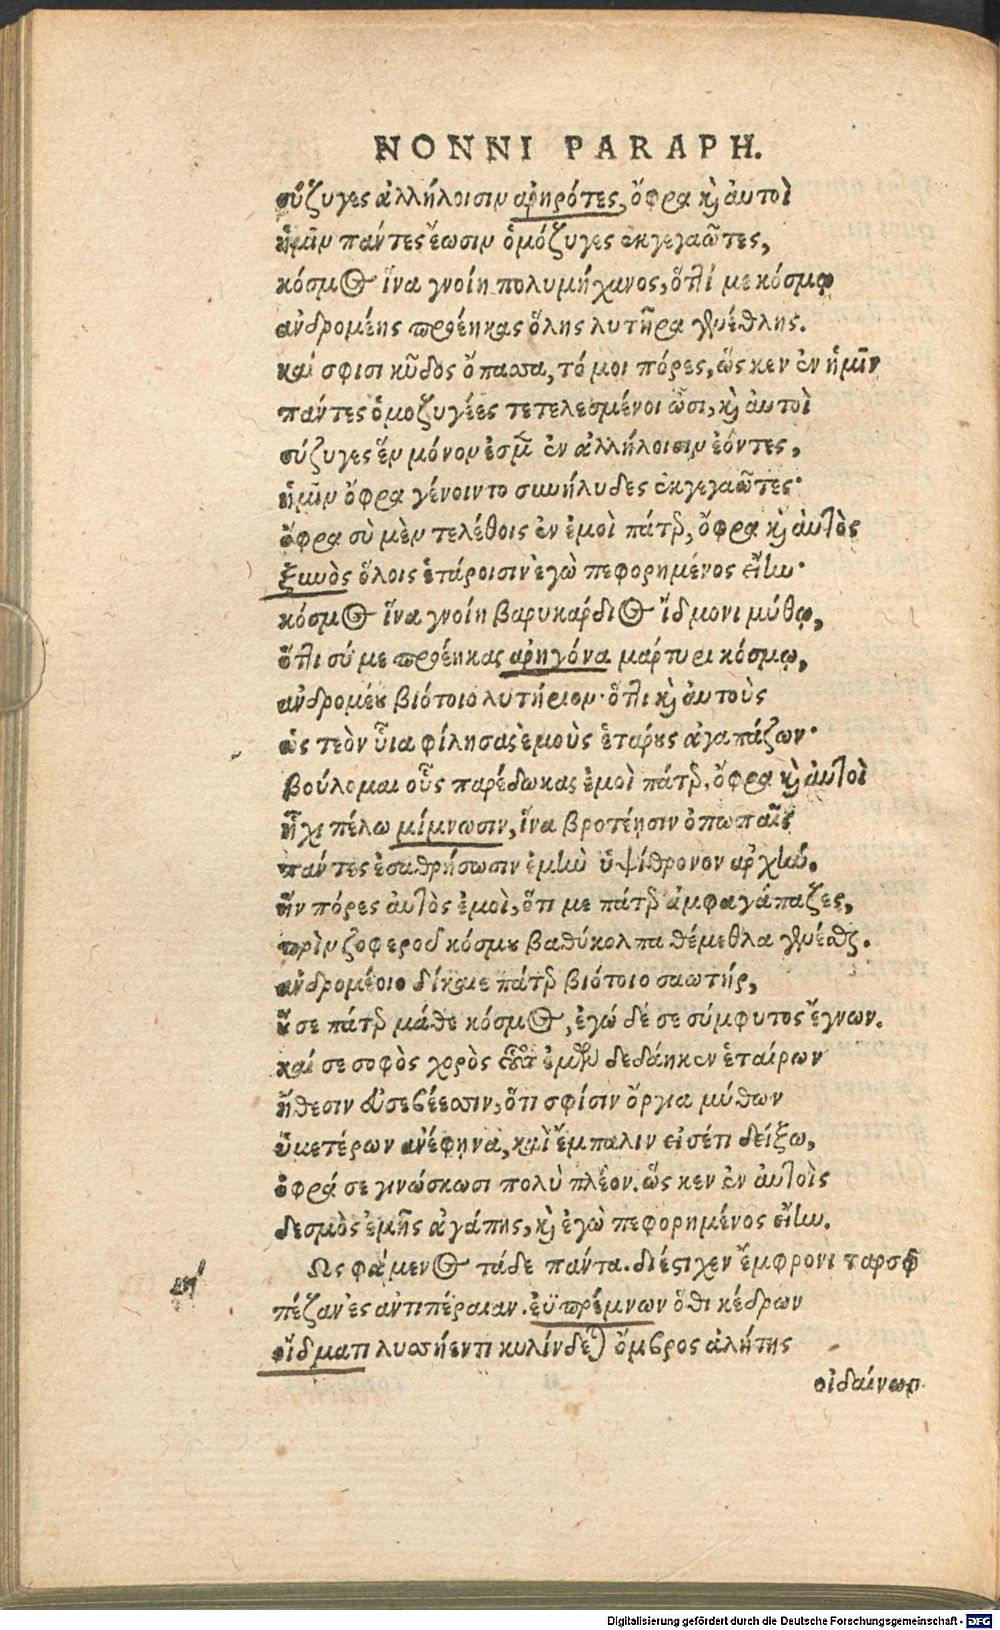 NONNI PARAPH.
σύζυγες ἀλλήλοισιν ἀρηρότες, ὄφρα κὶ ἀυτοὶ
ἡμῖν πάντες ἔωσιν ὁμόζυγες ἐκγεγαῶτες,
κόσμος ἵνα γνοίη πολυμήχανος, ὅτι με κόσμῳ
ἀνδρομέης προέηκας ὅλης λυτῆρα γενέθλης.
καί σφισι κῦδος ὄπασσα, τό μοι πόρες, ὥς κεν ἐν ἡμῖν
πάντες ὁμοζυγέες τετελεσμένοι ὦσι, κὶ ἀυτοὶ
σύζυγες ἓν μόνον ἐσμὲν ἐν ἀλλήλοισιν ἐόντες,
ἡμῖν ὄφρα γένοιντο συνήλυδες ἐκγεγαῶτες·
ὄφρα σὺ μὲν τελέθοις ἐν ἐμοὶ πάτερ, ὄφρα κὶ ἀυτὸς
ξυνὸς ὅλοις ἑτάροισιν ἐγὼ πεφορημένος εἴην·
κόσμος ἵνα γνοίη βαρυκάρδιος ἴδμονι μύθῳ,
ὅτι σύ με προέηκας ἀρηγόνα μάρτυρι κόσμῳ,
ἀνδρομέου βιότοιο λυτήριον· ὅτι κὶ ἀυτοὺς
ὡς τεὸν ὗια φίλησας ἐμοὺς ἑτάρους ἀγαπάζων·
βούλομαι οὓς παρέδωκας ἐμοὶ πάτερ, ὄφρα κὶ ἀυτοὶ
ἧχι πέλω μίμνωσιν, ἵνα βροτέῃσιν ὀπωπαῖς
πάντες ἐσαθρήσωσιν ἐμὴν ὑψίθρονον ἀρχήν.
ἣν πόρες ἀυτὸς ἐμοὶ, ὅτι με πάτερ ἀμφαγάπαζες,
πρὶν ζοφεροῦ κόσμου βαθύκολπα θέμεθλα γενέσθαι.
ἀνδρομέοιο δίκαιε πάτερ βιότοιο σαωτήρ,
οὔ σε πάτερ μάθε κόσμος, ἐγώ δέ σε σύμφυτος ἔγνων.
καί σε σοφὸς χορὸς οὗτος ἐμῶν δεδάηκεν ἑταίρων
ἤθεσιν ἐυσεβέεσσιν, ὅτι σφίσιν ὄργια μύθων
ὑμετέρων ἀνέφηνα, καὶ ἔμπαλιν εἰσέτι δείξω,
ὄφρά σε γινώσκωσι πολὺ πλέον. ὥς κεν ἐν ἀυτοῖς
δεσμὸς ἐμῆς ἀγάπης, κὶ ἐγὼ πεφορημένος εἴην.
Ως φάμενος τάδε πάντα. διέστιχεν ἔμφρονι ταρσῷ
πέζαν ἐς ἀντιπέραιαν. ἐϋπρέμνων ὅθι κέδρων
οἴδματι λυσσήεντι κυλίνδεται ὄμβρος ἀλήτης
οἰδαίνων
Digitalisierung gefördert durch die Deutsche Forschungsgemeinschaft - DFG